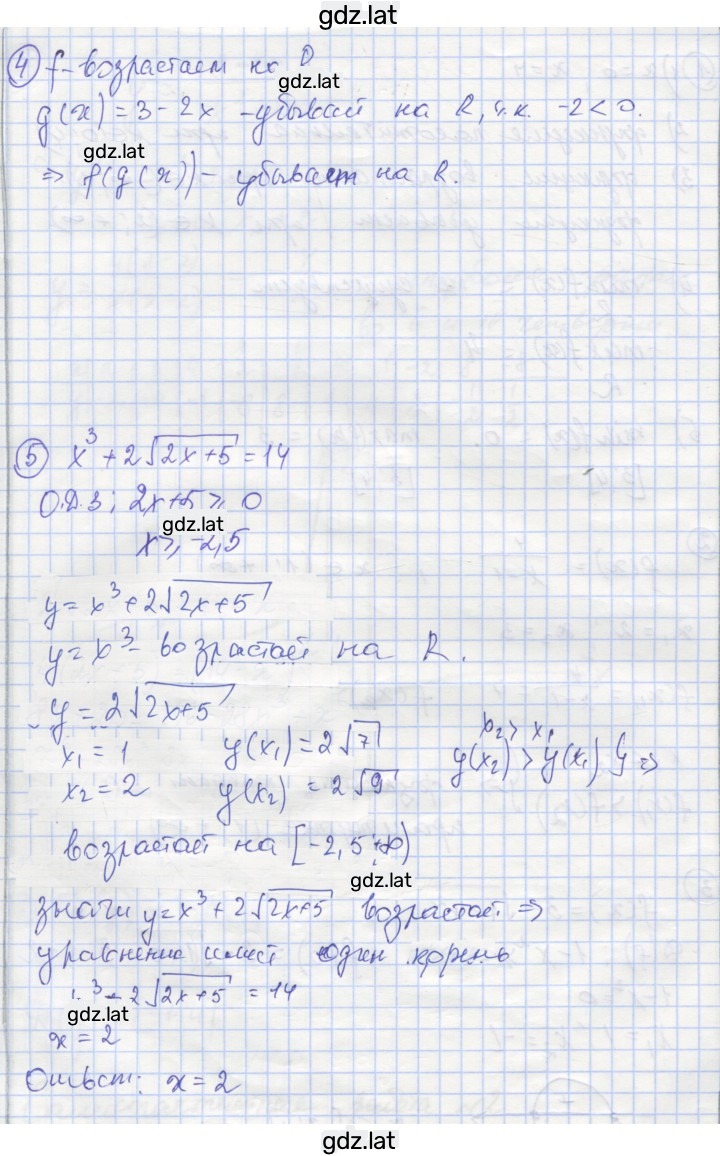 gdz.lat
④ f - возрастает на D
gdz.lat
g(x) = 3 - 2x - убывай на R, т.к. -2 < 0.
gdz.lat
=> f(g(x)) - убывает на R.
⑤ x³ + 2√(2x+5) = 14
О.Д.З; 2x+5 ≥ 0
gdz.lat
x ≥ -2,5
y = x³ + 2√(2x+5)
y = x³ - возрастает на R.
y = 2√(2x+5)
x₁ = 1 y(x₁) = 2√7 x₂ > x₁
x₂ = 2 y(x₂) = 2√9 y(x₂) > y(x₁) =>
возрастает на [-2,5; +∞)
gdz.lat
значи y = x³ + 2√(2x+5) возрастает =>
уравнение имеет один корень
x³ + 2√(2x+5) = 14
gdz.lat
x = 2
Ответ: x = 2
gdz.lat